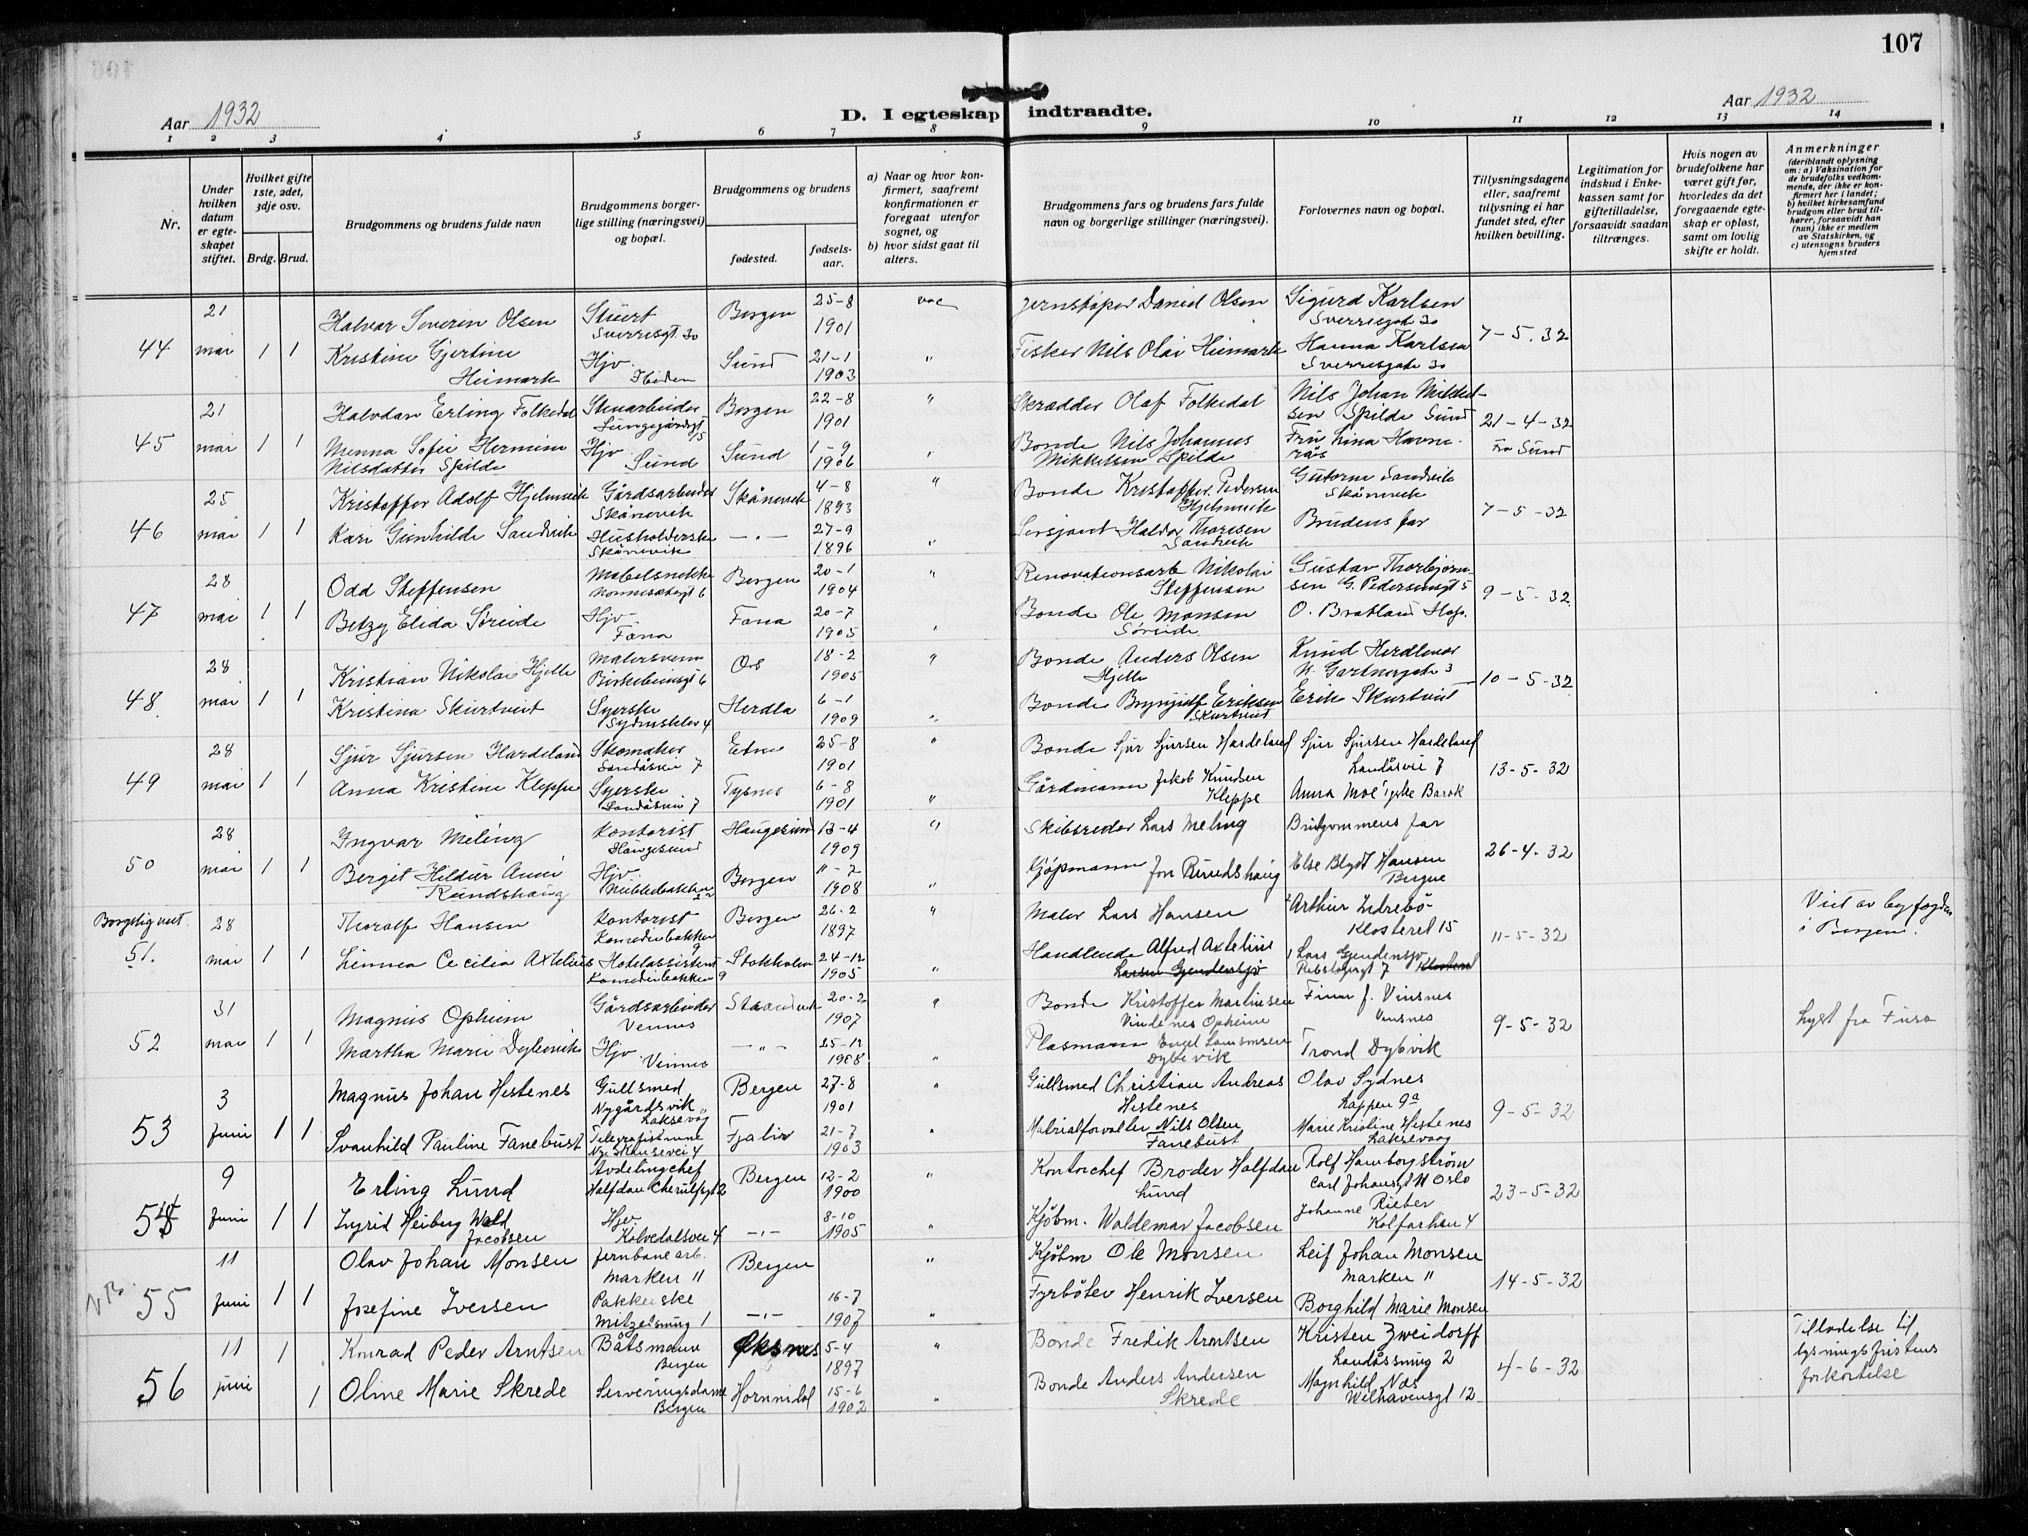 107
Aar 1932
D. I egteskap indtraadte.
Aar 1932
1 2 3 4 5 6 7 8 9 10 11 12 13 14
Nr.
Under hvilken datum er egteskapet stiftet.
Hvilket gifte 1ste, 2det, 3dje osv.
Brdg. Brud.
Brudgommens og brudens fulde navn
Brudgommens borgerlige stilling (næringsvei) og bopæl.
Brudgommens og brudens
fødested.
fødselsaar.
a) Naar og hvor konfirmert, saafremt konfirmationen er foregaat utenfor sognet, og
b) hvor sidst gaat til alters.
Brudgommens fars og brudens fars fulde navn og borgerlige stillinger (næringsvei).
Forlovernes navn og bopæl.
Tillysningsdagene eller, saafremt tillysning ei har fundet sted, efter hvilken bevilling.
Legitimation for indskud i Enkekassen samt for giftetilladelse, forsaavidt saadan tiltrænges.
Hvis nogen av brudefolkene har været gift før, hvorledes da det foregaaende egteskap er opløst, samt om lovlig skifte er holdt.
Anmerkninger
(deriblandt oplysning om: a) Vaksination for de brudefolks vedkommende, der ikke er konfirmert her i landet; b) hvilket kirkesamfund brudgom eller brud tilhører, forsaavidt han (hun) ikke er medlem av Statskirken, og c) utensogns bruders hjemsted
44 21 mai 1 1
Halvar Severin Olsen Stuert Sverresgt 30 Bergen 25-8 1901 Daniel Olsen Sigurd Karlsen Sverresgate 30 7-5.32
Kristine Gjertine Heimark Hjv. Sund 21-1 1903 " Fisker Nils Olai Heimark Hanna Karlsen Sverresgate 30
45 21 mai 1 1
Halvdan Erling Folkedal Stenarbeider Bergen 22-8 1901 " Skrædder Olaf Folkedal Nils Johan Mikkelsen Spilde Sund 21-4-32
Menna Sofie Hermine Nilsdatter Spilde Hjv. Sund Sund 1-9 1906 " Bonde Nils Johannes Mikkelsen Spilde Fru Lina Fra Sund
46 25 mai 1 1
Kristoffer Adolf Hjelmvik Gårdsarbeider Skånevik Skånevik 4-8 1893 " Bonde Kristoffer Pedersen Hjelmvik Guttorm Sandvik Skånevik 7-5-32
Kari Gunhilde Sandvik Husholderske Skånevik -"- 27-9 1896 " Sersjant Haldor Thoresen Sandvik Brudens far
47 28 mai 1 1
Odd Steffensen Nonnesætergt 6 Bergen 20-1 1904 " Renovationsarb Nikolai Steffensen Gustav Thorbjørnsen G. Pedersensgt 5 9-5-32
Betzy Elida Søreide Hjv. Fana Fana 20-7 1905 " Bonde Ole Monsen Søreide O. Bratland Hop.
48 28 mai 1 1
Kristian Nikolai Hjelle Malersvenn Birkebeinergt 6 Os 18-2 1905 " Bonde Anders Olsen Hjelle Knud Herdlevær N. Gartnergate 3 10-5-32
Kristina Skurtveit Syerske 4 Herdla 6-1 1909 " Bonde Brynjulf Eriksen Skurtveit Erik Skurtveit
49 28 mai 1 1
Sjur Sjursen Hardeland Skomaker Landåsvei 7 Etne 25-8 1901 " Bonde Sjur Sjursen Hardeland Sjur Sjursen Hardeland Landåsvei 7 13-5-32
Anna Kristine Kleppe Syerske Landåsvei 7 Tysnes 6-8 1901 " Gårdmann Jakob Knudsen Kleppe Anna Moe
50 28 mai 1 1
Ingvar Meling Kontorist Haugesund Haugesund 13-4 1909 " Skibsreder Lars Meling Brudgommens far 26-4-32
Bergit Hildur Rundshaug Hjv. Bergen 11-2 1908 " Kjøpmann Jon Rundshaug Else Blydt Hansen Bergen
Borgelig viet.
51. 28 mai 1 1
Thoralf Hansen Kontorist Komediebakken 9 Bergen 26-2 1897 " Maler Lars Hansen 2 Arthur Idrebø Klosteret 15 11-5-32 Viet av byfogden i Bergen.
Linnea Cecilia Axtelius Hotelassistent Komediebakken 9 Stokholm 24-12 1905 " Handlende Alfred Axtelius 1 Lars Gjendemsjø 7
52 31 mai 1 1
Magnus Opheim Gårdsarbeider Vennes Strandvik 20-2 1907 " Bonde Kristoffer Martinsen Vindenes Opheim Finn J. Vinsnes Vinsnes 9-5-32 Lyst fra Fusa
Martha Marie Dybevik Hjv. Vinnes -"- 25-12 1908 " Plasmann Engel Dybevik Trond Dybvik
53 3 Juni 1 1
Magnus Johan Hestenes Gullsmed Nygårdsvik, Laksevåg Bergen 27-8 1901 " Gullsmed Christian Andreas Hestenes Olav Sydnes Lappen 9a 9-5-32
Svanhild Pauline Fanebust Telegrafistinne Nye Skansevei 4 Fjaler 21-7 1903 " Matrialforvalter Nils Olsen Fanebust Marie Kristine Hestenes Laksevaag
54 9 Juni 1 1
Erling Lund Avdelingchef Halfdan Cherulfsgt 2 Bergen 12-2 1900 " Kontorchef Broder Halfdan Lund Rolf Hamborgstrøm Carl Johansgt 11 Oslo 23-5-32
Ingrid Heiberg Wold Jacobsen Hjv. Kalvedalsvei 4 -"- 8-10 1905 " Kjøbm. Waldemar Jacobsen Johanne Rieber Kalfarlien 4
55 11 Juni 1 1
Olav Johan Monsen Jernbanearb. Marken 11 Bergen " Kjøbm Ole Monsen Leif Johan Monsen Marken 11 14-5-32
Josefine Iversen Pakkerske 1 -"- 16-7 1907 " Fyrbøter Henrik Iversen Borghild Marie Monsen
56 11 juni 1 1
Konrad Peder Arntsen Båtsmann Bergen Øksnes 5-4 1897 " Bonde Fredik Arntsen Kristen Zweidorff Landåssving 2 4-6-32 Tilladelse til lysningsfristens forkortelse
Oline Marie Skrede Serveringsdame Bergen Hornindal 15-6 1902 " Bonde Anders Andersen Skrede Magnhild Næs Welhavensgt 12